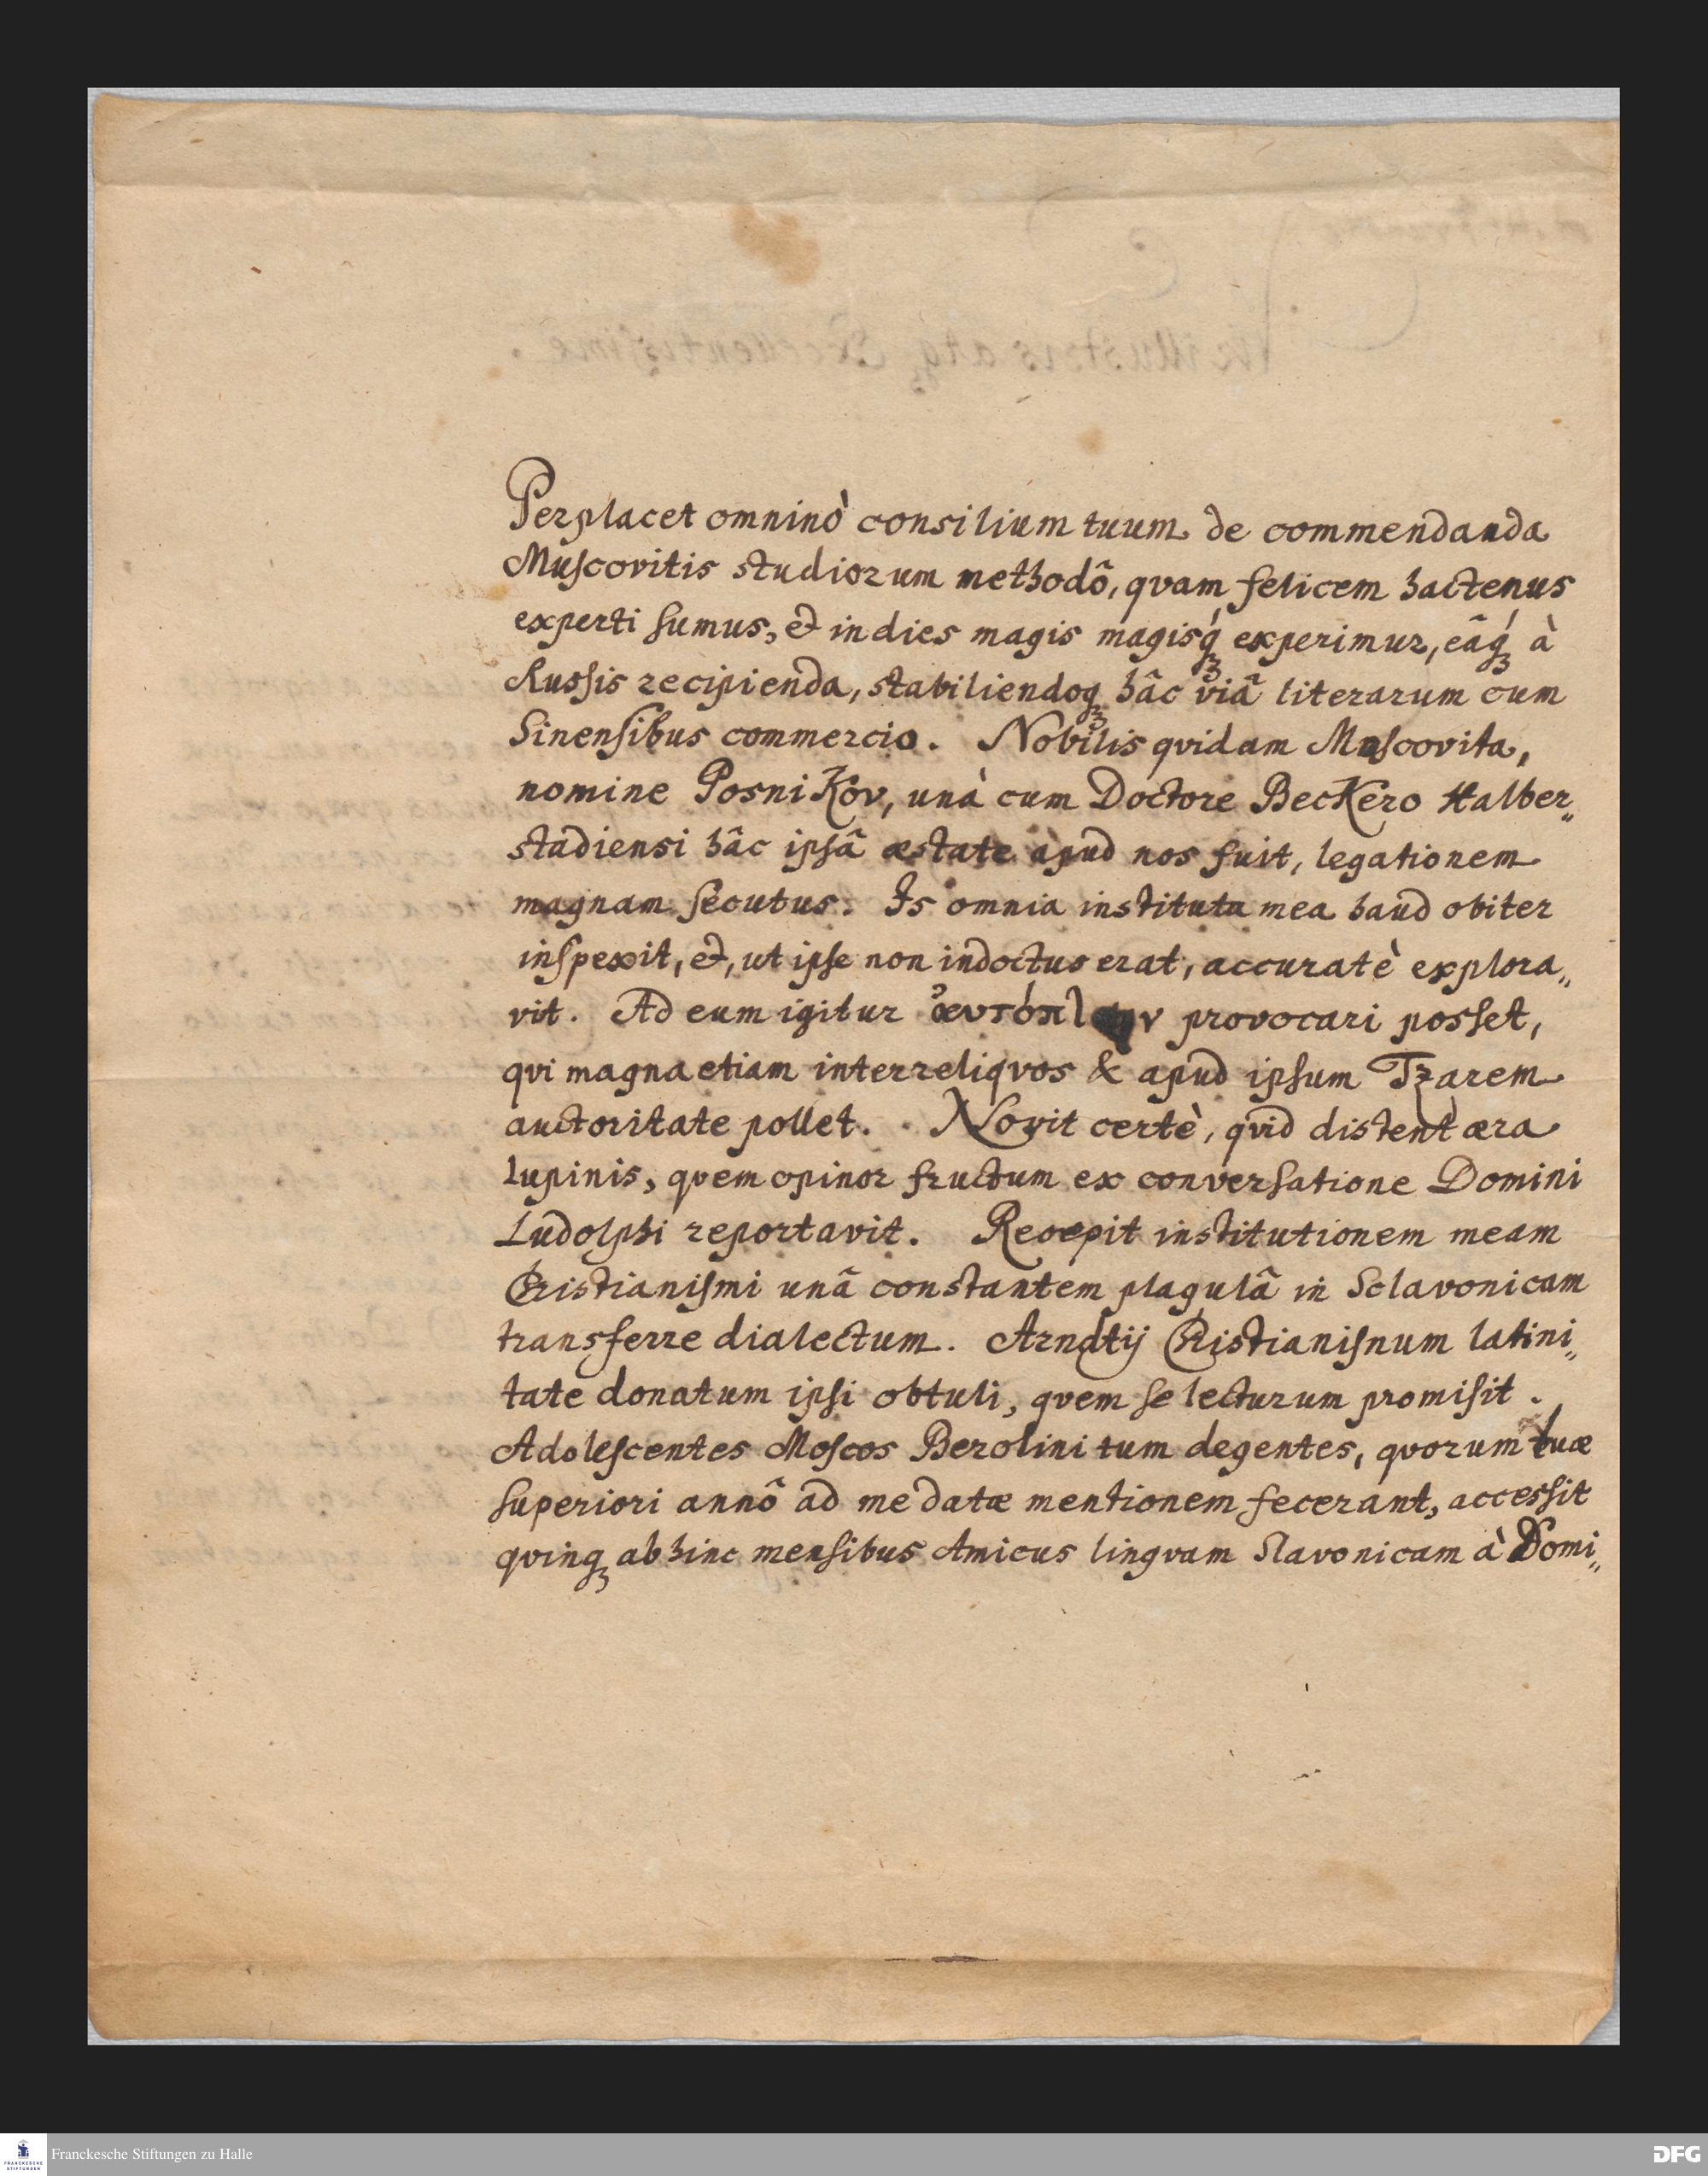 Perplacet omninò consilium tuum de commendanda
Muscovitis studiorum methodô, qvam felicem hactenus
experti sumus, & in dies magis magisq́ꝫ experimur, eâq́ꝫ à
Russis recipienda, stabiliendoqꝫ hâc viâ literarum cum
Sinensibus commercio. Nobilis qvidam Muscovita,
nomine PosniKov, unà cum Doctore BecKero Halber„
stadiensi hâc ipsâ æstate apud nos fuit, legationem
magnam secutus. Is omnia instituta mea haud obiter
inspexit, &, ut ipse non indoctus erat, accuratè explora„
vit. Ad eum igitur provocari posset,
qvi magna etiam inter reliqvos & apud ipsum Tzarem
auctoritate pollet. Novit certè, qvid distent æra
lupinis, qvem opinor fructum ex conversatione Domini
Ludolphi reportavit. Recepit institutionem meam
Christianismi unâ constantem plagulâ in Sclavonicam
transferre dialectum. Arndtij Christianismum latini„
tate donatum ipsi obtuli, qvem se lecturum promisit.
Adolescentes Moscos Berolini tum degentes, qvorum tuæ
superiori annô ad me datæ mentionem fecerant, accessit
qvinqꝫ abhinc mensibus Amicus lingvam Slavonicam à Domi„
Franckesche Stiftungen zu Halle
FRANCKESCHE
STIFTUNGEN
DFG